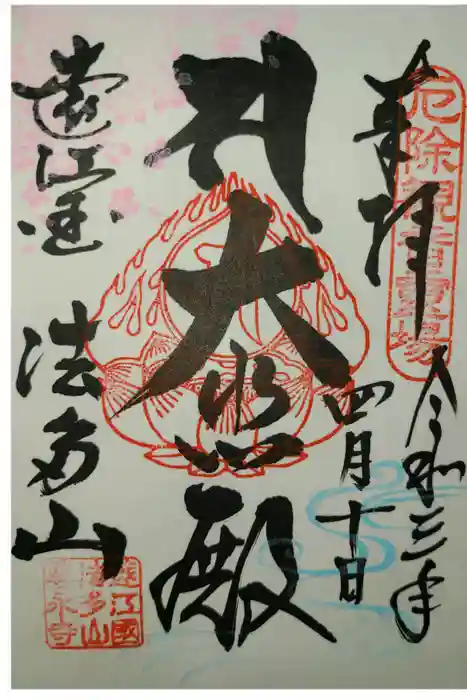 奉拝
厄除観音霊場
令和三年
四月十日
大悲殿
遠江国
法多山
遠江國
法多山
尊永寺